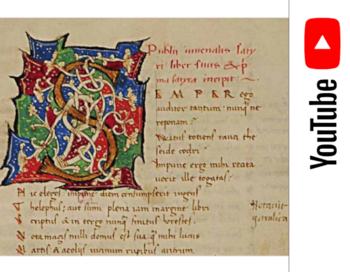 Publii iuvenalis saty
ri liber
ma satyra incipit
EMPER ego
auditor tantum nunq ne
reponam
Vexatus totiens rauci the
seide codri
Impune ergo mihi recita
verit ille togatas
Hic elegos impune diem consumpserit ingens
Thelephus aut summi plena iam margine libri
Scriptus & in tergo nundum finitus horestes
Nota magis nulli domus est sua q mihi lucus
Martis & aeolijs vicinum rupibus antrum
YouTube